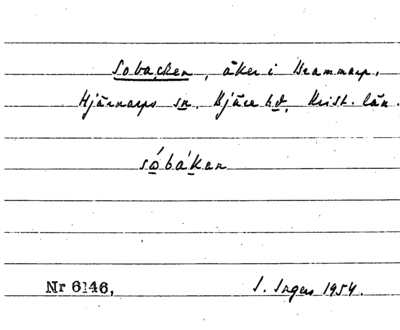 Sobacken, åker i Brammarp,
Hjärnarps sn. Bjäre hd, Krist. län.
sóbákan
Nr 6146, I. Ingers 1954.